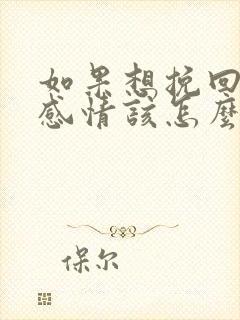 如果想挽回
感情该怎麼
保尔